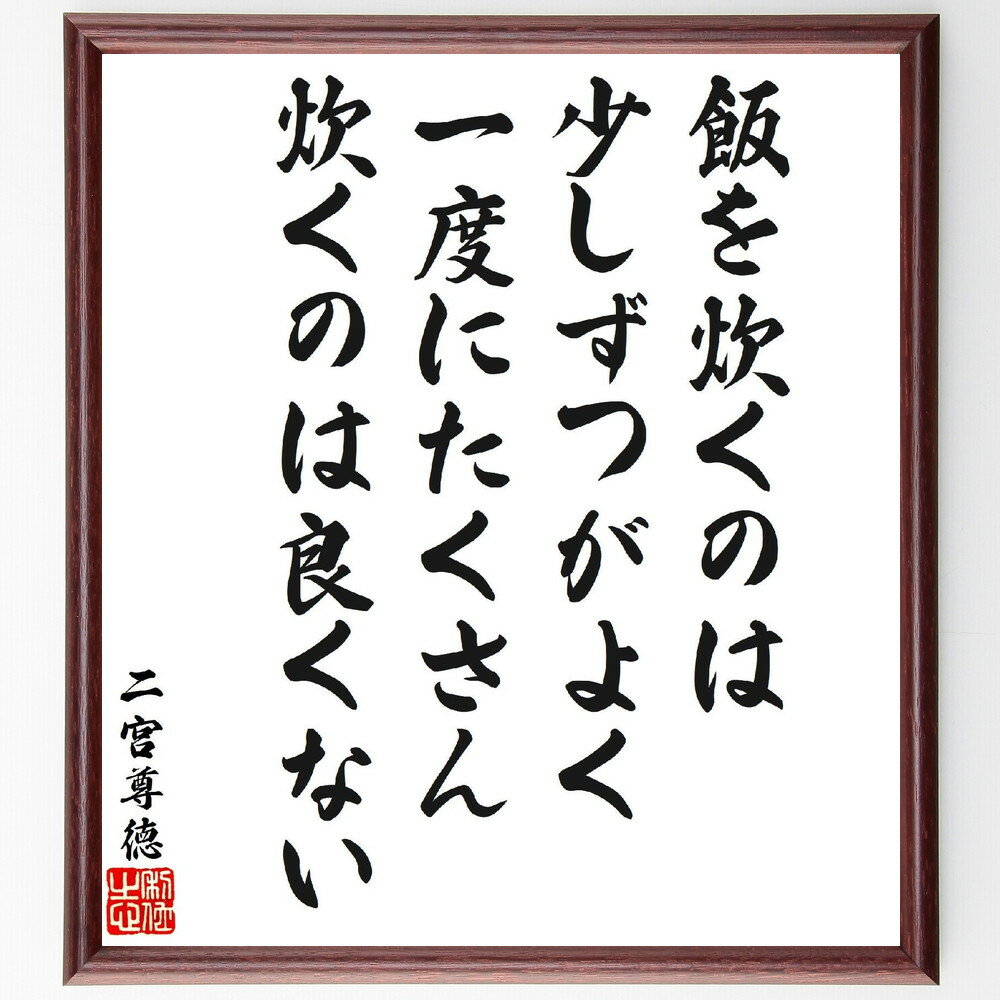 飯を炊くのは
少しずつがよく
一度にたくさん
炊くのは良くない
二宮尊徳